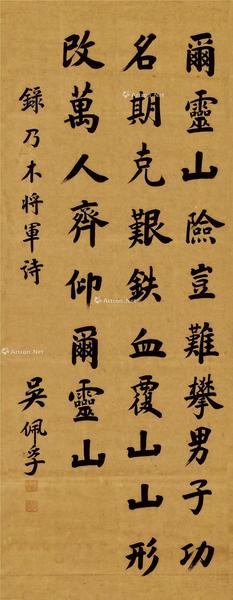 爾靈山險豈難攀男子功
名期克艱鉄血覆山山形
改萬人齊仰爾靈山
錄乃木將軍诗
吳佩孚
Artron.Net
Artron.Net
Artron.Net
Artron.Net